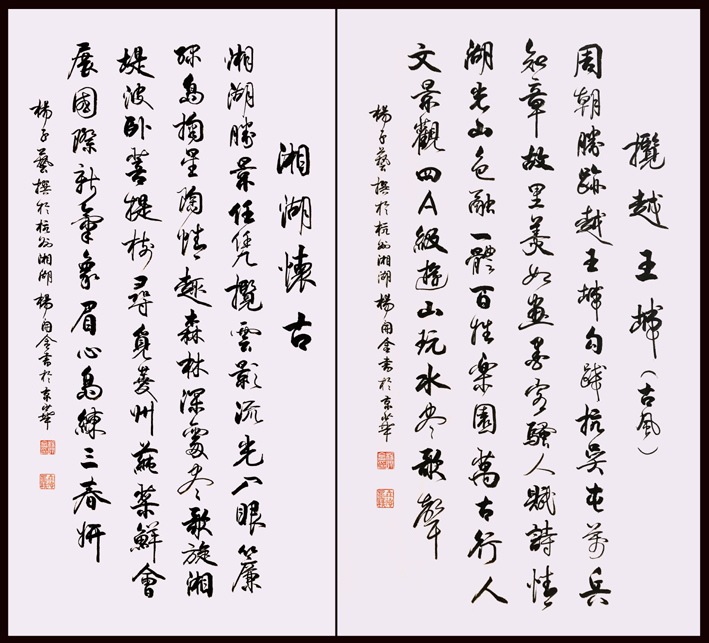 攬越王城（古風）
周朝勝跡越王城勾踐抗吳屯萬兵
知章故里美如畫墨客騷人賦詩情
湖光山色融一體百姓樂園萬古行人
文景觀四A級遊山玩水尽歌聲
楊子藝撰於杭州湘湖楊金書於京華
湘湖懷古
湘湖勝景任凭攬雲影流光入眼簾
环島摘星陶情趣森林深處尽歌旋湘
堤波卧菩提樹尋覓菱州蒓菜鮮會
展國際新氣象眉心島練三春妍
楊子藝撰於杭州湘湖楊金書於京華